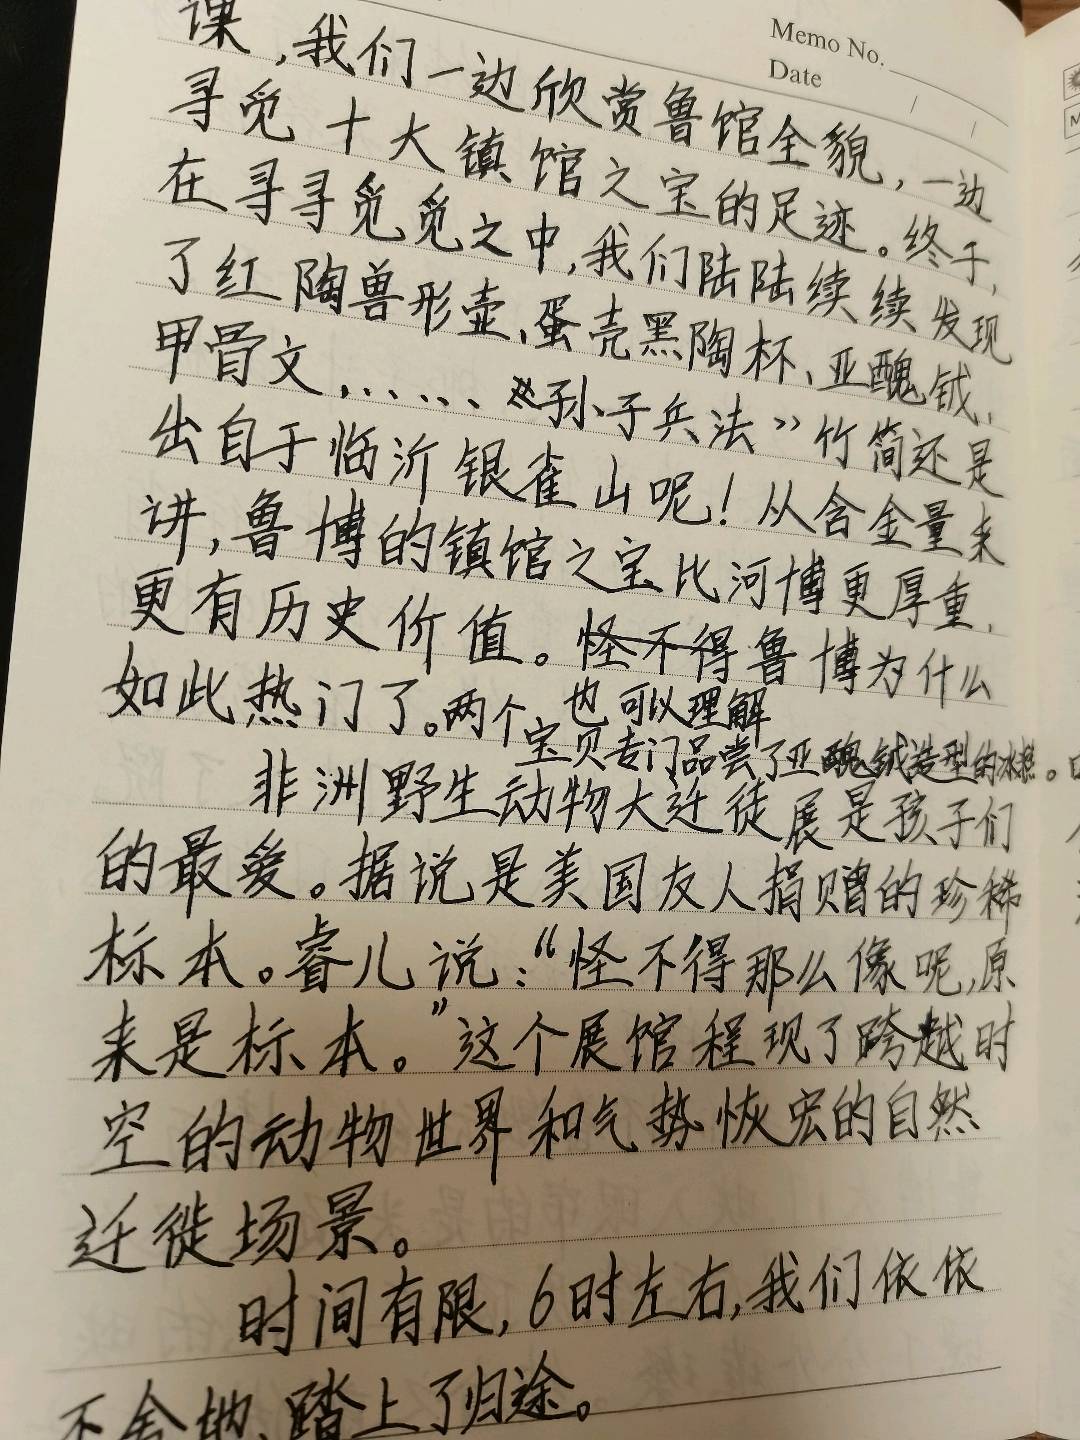 Memo No.
Date / /
课,我们一边欣赏鲁馆全貌,一边
寻觅十大镇馆之宝的足迹。终于,
在寻寻觅觅之中,我们陆陆续续发现
了红陶兽形壶、蛋壳黑陶杯、亚醜钺、
甲骨文......《孙子兵法》竹简还是
出自于临沂银雀山呢!从含金量来
讲,鲁博的镇馆之宝比河博更厚重,
更有历史价值。怪不得鲁博为什么
也可以理解
如此热门了。两个宝贝专门品尝了亚醜钺造型的冰棍。
非洲野生动物大迁徒展是孩子们
的最爱。据说是美国友人捐赠的珍稀
标本。睿儿说:“怪不得那么像呢,原
来是标本。”这个展馆程现了跨越时
空的动物世界和气势恢宏的自然
迁徙场景。
时间有限,6时左右,我们依依
不舍地踏上了归途。